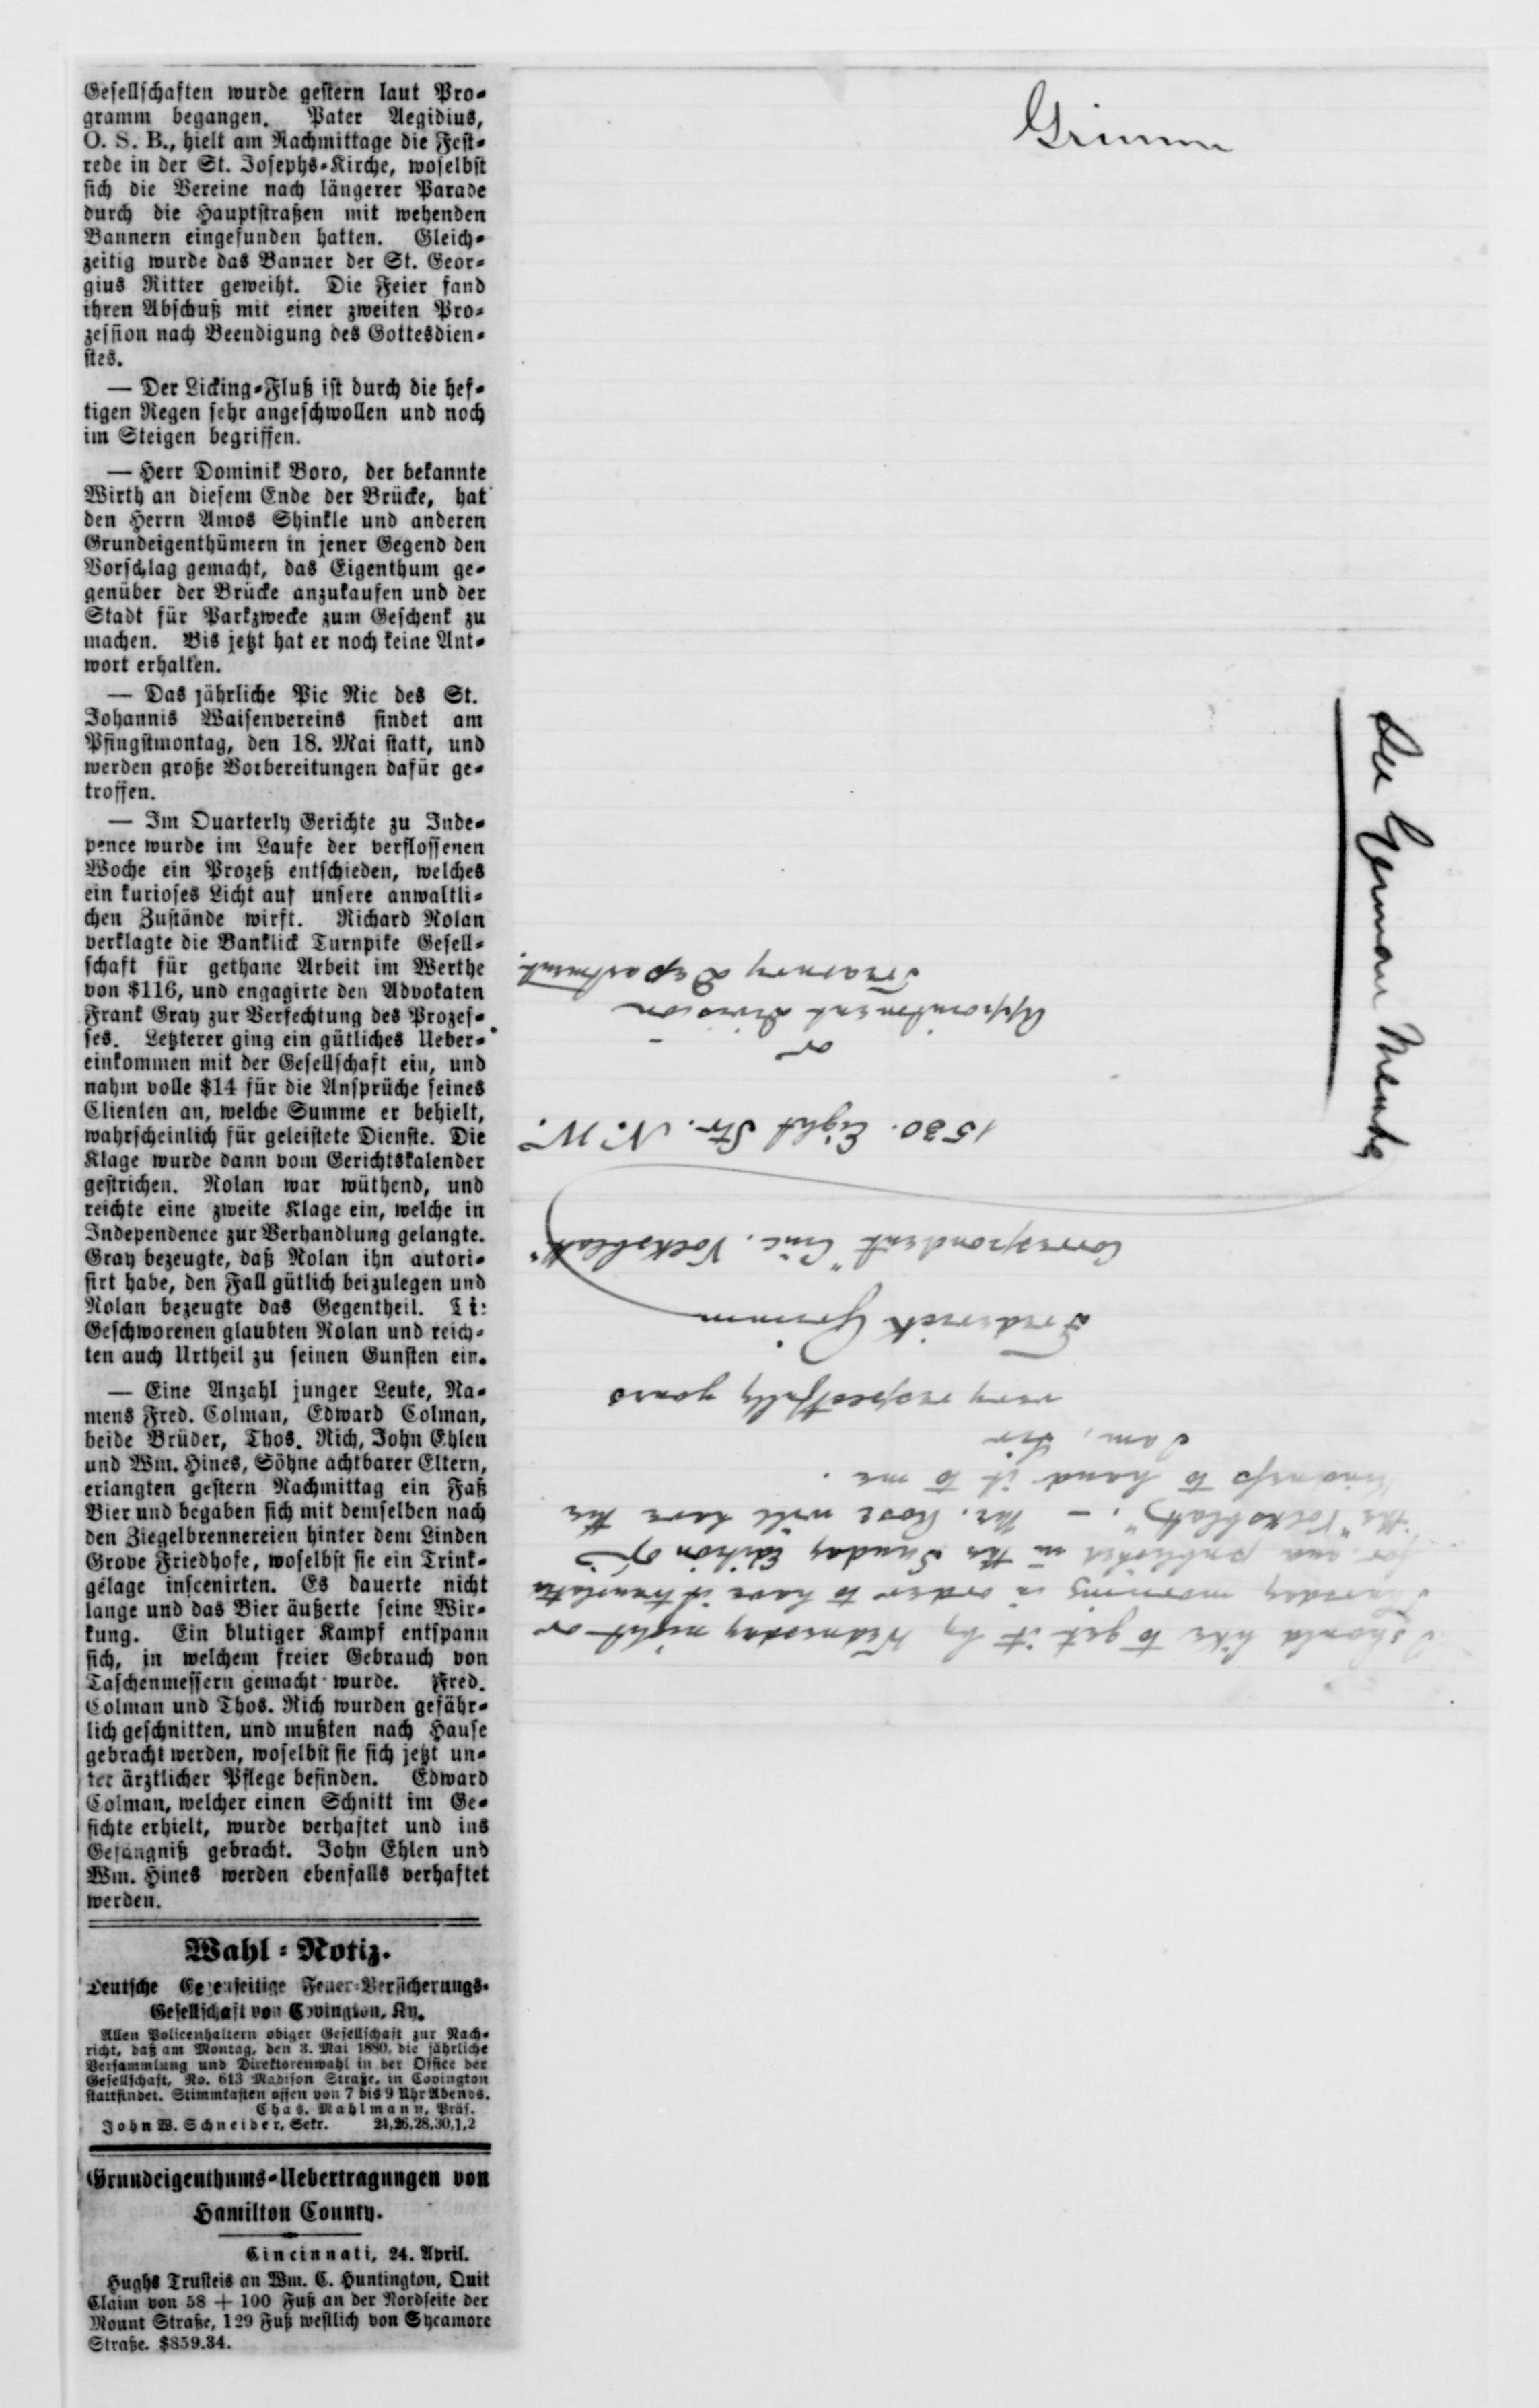 Gesellschaften wurde gestern laut Pro-
gramm begangen. Pater Aegidius,
O. S. B., hielt am Nachmittage die Fest-
rede in der St. Josephs-Kirche, woselbst
sich die Vereine nach längerer Parade
durch die Hauptstraßen mit wehenden
Bannern eingefunden hatten. Gleich-
zeitig wurde das Banner der St. Geor-
gius Ritter geweiht. Die Feier fand
ihren Abschuß mit einer zweiten Pro-
zession nach Beendigung des Gottesdien-
stes.
— Der Licking-Fluß ist durch die hef-
tigen Regen sehr angeschwollen und noch
im Steigen begriffen.
— Herr Dominik Boro, der bekannte
Wirth an diesem Ende der Brücke, hat
den Herrn Amos Shinkle und anderen
Grundeigenthümern in jener Gegend den
Vorschlag gemacht, das Eigenthum ge-
genüber der Brücke anzukaufen und der
Stadt für Parkzwecke zum Geschenk zu
machen. Bis jetzt hat er noch keine Ant-
wort erhalten.
— Das jährliche Pic Nic des St.
Johannis Waisenvereins findet am
Pfingstmontag, den 18. Mai statt, und
werden große Vorbereitungen dafür ge-
troffen.
— Im Quarterly Gerichte zu Inde-
pence wurde im Laufe der verflossenen
Woche ein Prozeß entschieden, welches
ein kurioses Licht auf unsere anwaltli-
chen Zustände wirft. Richard Nolan
verklagte die Banklick Turnpike Gesell-
schaft für gethane Arbeit im Werthe
von $116, und engagirte den Advokaten
Frank Gray zur Verfechtung des Prozes-
ses. Letzterer ging ein gütliches Ueber-
einkommen mit der Gesellschaft ein, und
nahm volle $14 für die Ansprüche seines
Clienten an, welche Summe er behielt,
wahrscheinlich für geleistete Dienste. Die
Klage wurde dann vom Gerichtskalender
gestrichen. Nolan war wüthend, und
reichte eine zweite Klage ein, welche in
Independence zur Verhandlung gelangte.
Gray bezeugte, daß Nolan ihn autori-
sirt habe, den Fall gütlich beizulegen und
Nolan bezeugte das Gegentheil.
Geschworenen glaubten Nolan und reich-
ten auch Urtheil zu seinen Gunsten ein.
— Eine Anzahl junger Leute, Na-
mens Fred. Colman, Edward Colman,
beide Brüder, Thos. Rich, John Ehlen
und Wm. Hines, Söhne achtbarer Eltern,
erlangten gestern Nachmittag ein Faß
Bier und begaben sich mit demselben nach
den Ziegelbrennereien hinter dem Linden
Grove Friedhofe, woselbst sie ein Trink-
gelage inscenirten. Es dauerte nicht
lange und das Bier äußerte seine Wir-
kung. Ein blutiger Kampf entspann
sich, in welchem freier Gebrauch von
Taschenmessern gemacht wurde. Fred.
Colman und Thos. Rich wurden gefähr-
lich geschnitten, und mußten nach Hause
gebracht werden, woselbst sie sich jetzt un-
ter ärztlicher Pflege befinden. Edward
Colman, welcher einen Schnitt im Ge-
sichte erhielt, wurde verhaftet und ins
Gefängniß gebracht. John Ehlen und
Wm. Hines werden ebenfalls verhaftet
werden.
Wahl-Notiz.
Deutsche Gegenseitige Feuer-Versicherungs-
Gesellschaft von Covington, Ky.
Allen Policenhaltern obiger Gesellschaft zur Nach-
richt, daß am Montag, den 3. Mai 1880, die jährliche
Versammlung und Direktorenwahl in der Office der
Gesellschaft, No. 613 Madison Straße, in Covington
stattfindet. Stimmkasten offen von 7 bis 9 Uhr Abends.
Chas. Mahlmann, Präs.
John W. Schneider, Sekr. 24,26,28,30,1,2
Grundeigenthums-Uebertragungen von
Hamilton County.
Cincinnati, 24. April.
Hughs Trusteis an Wm. C. Huntington, Quit
Claim von 58 + 100 Fuß an der Nordseite der
Mount Straße, 129 Fuß westlich von Sycamore
Straße. $859.34.
Grimm
I should like to get it by Wednesday night or
Thursday morning in order to have it translated
for and published in the Sunday Edition of
the "Volksblatt". — Mr. Rose will have the
kindness to hand it to me.
I am, Sir
very respectfully yours
Frederick Grimm
Correspondent "Cinc. Volksblatt"
1530. Eight Str. N.W.
or
Appointment Division
Treasury Department.
German